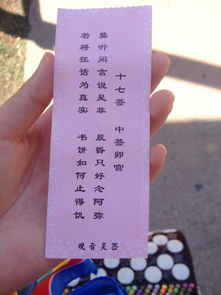 十七签 中签卯宫
莫听闲言说是非 晨昏只好念阿弥
若将狂话为真实 书饼如何止得饥
观音灵签